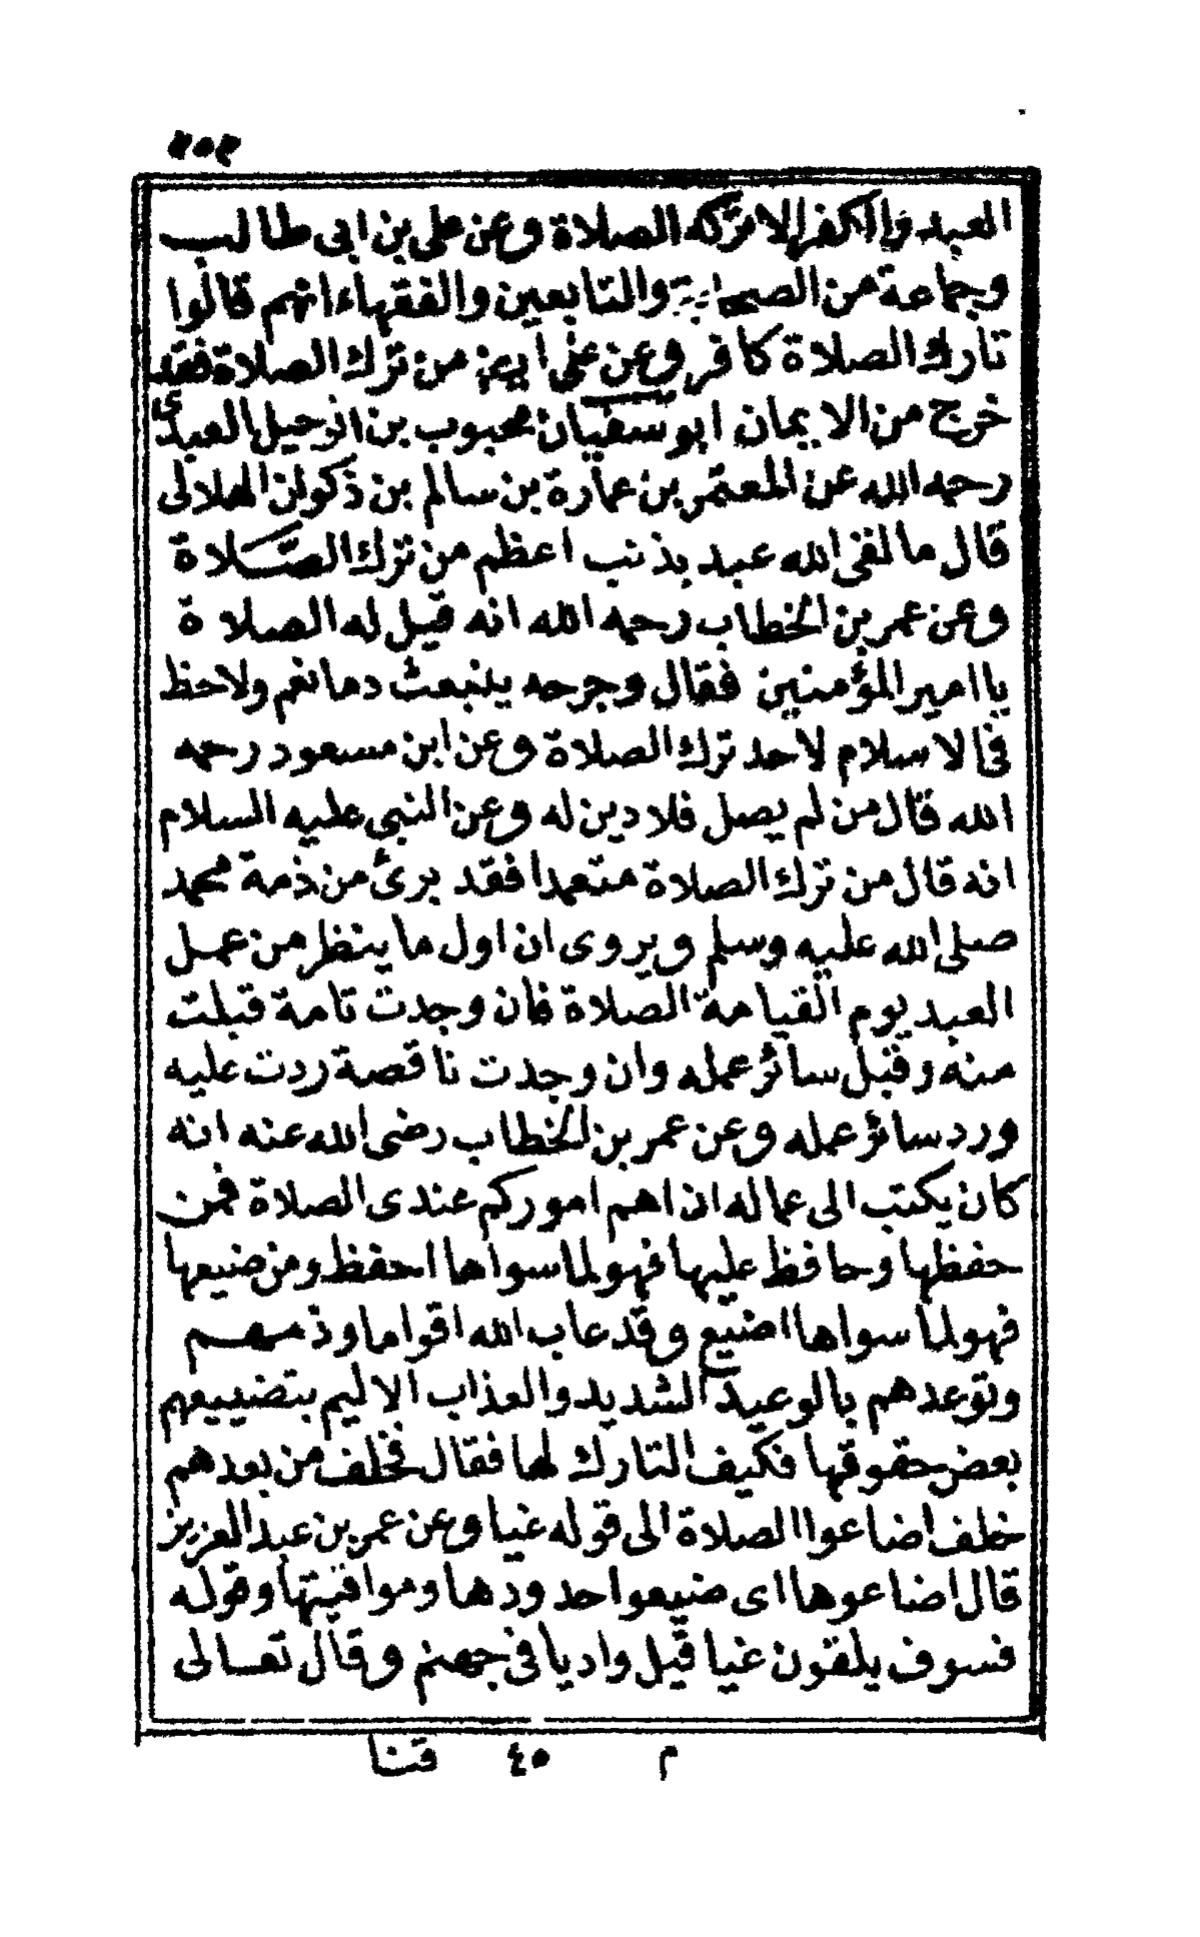 العبد والكفر الا تركه الصلاة وعن علي بن ابى طالب
وجماعة من الصحابة والتابعين والفقهاء انهم قالوا
تارك الصلاة كافر وعن على ايضا من ترك الصلاة فقد
خرج من الايمان ابو سفيان محبوب بن الرحيل العبدى
رحمه الله عن المعتمر بن عمارة بن سالم بن ذكوان الهلالى
قال ما لقى الله عبد بذنب اعظم من ترك الصلاة
وعن عمر بن الخطاب رحمه الله انه قيل له الصلاة
يا امير المؤمنين فقال وجرحه ينبعث دما نعم ولاحظ
فى الاسلام لاحد ترك الصلاة وعن ابن مسعود رحمه
الله قال من لم يصل فلا دين له وعن النبى عليه السلام
انه قال من ترك الصلاة متعمدا فقد برئ من ذمة محمد
صلى الله عليه وسلم ويروى ان اول ما ينظر من عمل
العبد يوم القيامة الصلاة فان وجدت تامة قبلت
منه وقبل سائر عمله وان وجدت ناقصة ردت عليه
ورد سائر عمله وعن عمر بن الخطاب رضى الله عنه انه
كان يكتب الى عماله ان اهم اموركم عندى الصلاة فمن
حفظها وحافظ عليها فهو لما سواها احفظ ومن ضيعها
فهو لما سواها اضيع وقد عاب الله اقواما وذمهم
وتوعدهم بالوعيد الشديد والعذاب الاليم بتضييعهم
بعض حقوقها فكيف التارك لها فقال فخلف من بعدهم
خلف اضاعوا الصلاة الى قوله غيا وعن عمر بن عبد العزيز
قال اضاعوها اى ضيعوا حدودها ومواقيتها وقوله
فسوف يلقون غيا قيل واديا فى جهنم وقال تعالى
م ٤٥ قتنا